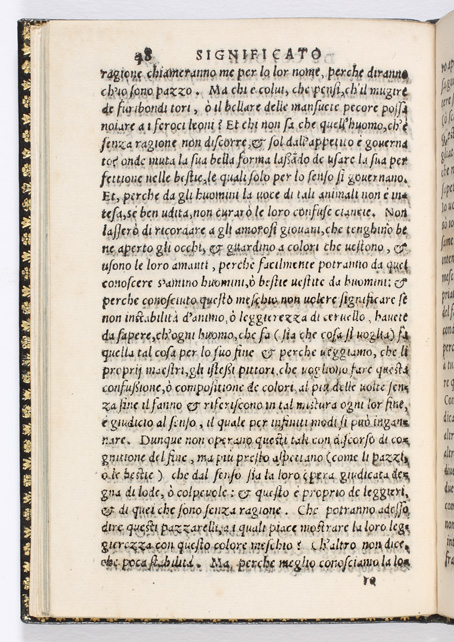 48 SIGNIFICATO
ragione chiameranno me per lo lor nome, perche diranno
ch'io sono pazzo. Ma chi e colui, che pensi, ch'il mugire
de furibondi tori, ò il bellare delle mansuete pecore possa
noiare a i feroci leoni? Et chi non sa che quell'huomo, ch'è
senza ragione non discorre, & sol dall'appetito è governa
to? onde muta la sua bella forma lassādo de usare la sua per
fettione nelle bestie, le quali solo per lo senso si governano.
Et, perche da gli huomini la uoce di tali animali non è in-
tesa, se ben udita, non curarò le loro confuse ciancie. Non
lasserò di ricordare a gli amorosi giovani, che tenghino be
ne aperto gli occhi, & guardino a colori che uestono, &
usono le loro amanti, perche facilmente potranno da quei
conoscere s'amino huomini, ò bestie uestite da huomini; &
perche conosciuto questo meschio non uolere significare se
non instabilità d'animo, ò leggierezza di ceruello, hauete
da sapere, ch'ogni huomo, che fa (sia che cosa si uoglia) fa
quella tal cosa per lo suo fine & perche ueggiamo, che li
proprij maestri, gli istessi pittori, che uogliono fare questa
confussione, ò compositione de colori, al più delle uolte sen-
za fine il fanno & riferiscono in tal mistura ogni lor fine,
e giudicio al senso, il quale per infiniti modi si può ingan-
nare. Dunque non operano questi tali con discorso di co-
gnitione del fine, ma più presto aspettano (come li pazzi,
ò le bestie) che dal senso sia la loro opera giudicata de-
gna di lode, ò colpevole: & questo e proprio de leggieri,
& di quei che sono senza ragione. Che potranno adesso
dire questi pazzarelli, a i quali piace mostrare la loro leg-
gierezza con questo colore meschio? Ch'altro non dice,
che poca stabilità. Ma, perche meglio conosciamo la lo-
ro